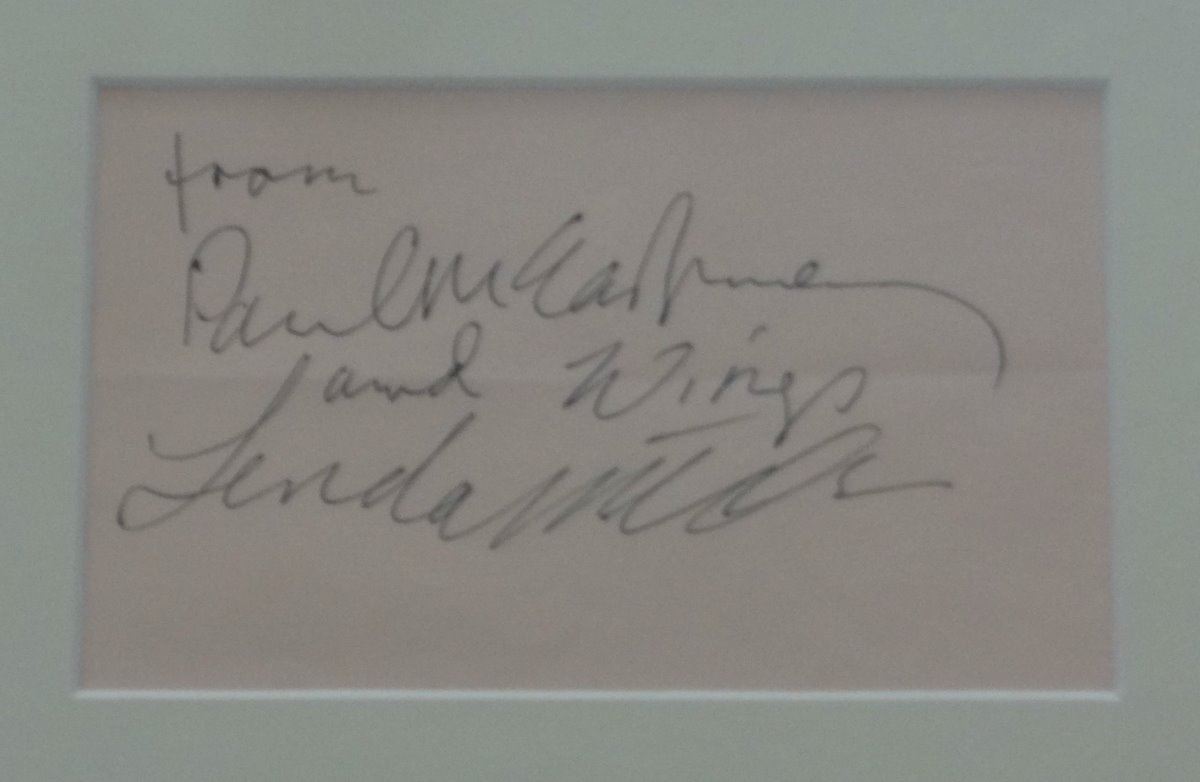 from
Paul McCartney
and Wings
Linda McC